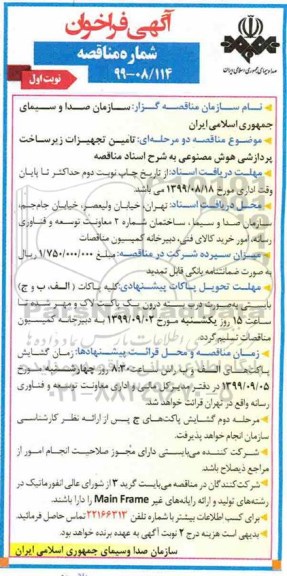 آگهی فراخوان
شماره مناقصه
۹۹-۰۸/۱۱۴
نوبت اول
صدا و سیمای جمهوری اسلامی ایران
نام سازمان مناقصه گزار: سازمان صدا و سیمای
جمهوری اسلامی ایران
موضوع مناقصه دو مرحله‌ای: تامین تجهیزات زیرساخت
پردازشی هوش مصنوعی به شرح اسناد مناقصه
مهلت دریافت اسناد: از تاریخ چاپ نوبت دوم حداکثر تا پایان
وقت اداری مورخ ۱۳۹۹/۰۸/۱۸ می باشد.
محل دریافت اسناد: تهران، خیابان ولیعصر، خیابان جام‌جم،
سازمان صدا و سیما، ساختمان شماره ۲ معاونت توسعه و فناوری
رسانه، امور خرید کالای فنی، دبیرخانه کمیسیون مناقصات
میزان سپرده شرکت در مناقصه: مبلغ ۱/۷۵۰/۰۰۰/۰۰۰ ریال
به صورت ضمانتنامه بانکی قابل تمدید
مهلت تحویل پاکات پیشنهادی: کلیه پاکات (الف، ب و ج)
بایستی به‌صورت در بسته درون یک پاکت لاک و مهر شده تا
ساعت ۱۵ روز یکشنبه مورخ ۱۳۹۹/۰۹/۰۲ به دبیرخانه کمیسیون
مناقصات تسلیم گردد.
زمان مناقصه و محل قرائت پیشنهادها: زمان گشایش
پاکت‌های الف و ب راس ساعت ۸:۳۰ روز چهارشنبه مورخ
۱۳۹۹/۰۹/۰۵ در دفتر مدیرکل مالی و اداری معاونت توسعه و فناوری
رسانه واقع در تهران قرائت خواهد شد.
مرحله دوم گشایش پاکت‌های ج پس از ارائه نظر کارشناسی
سازمان انجام خواهد پذیرفت.
شرکت کننده می‌بایستی دارای مجوز صلاحیت انجام امور از
مراجع ذیصلاح باشد.
شرکت‌کنندگان در مناقصه می‌بایست گرید ۳ از شورای عالی انفورماتیک در
رشته‌های تولید و ارائه رایانه‌های غیر Main Frame را دارا باشند.
برای کسب اطلاعات بیشتر با شماره تلفن ۲۲۱۶۶۳۱۳ تماس حاصل فرمائید.
بدیهی است هزینه درج ۲ نوبت آگهی به عهده برنده خواهد بود.
سازمان صدا وسیمای جمهوری اسلامی ایران